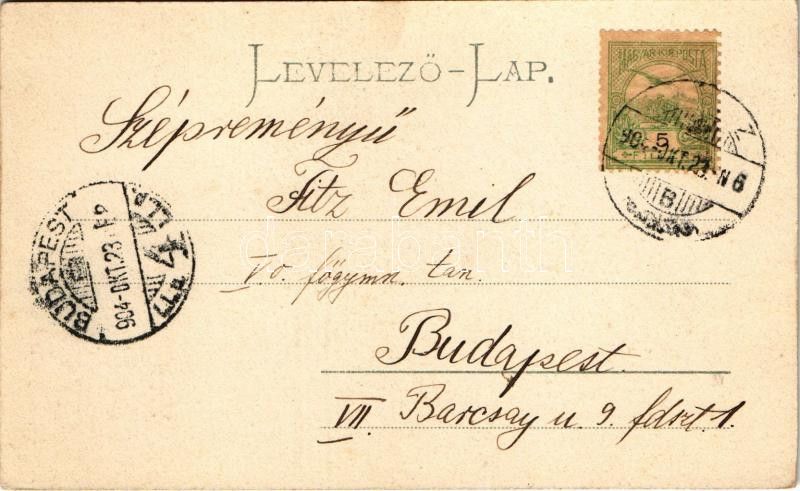 LEVELEZŐ-LAP.
MAGYAR KIR. POSTA
5
904-OKT.23. N 6
B
Szépreményű
Fitz Emil
V. o. főgymn. tan.
Budapest.
VII. Barcsay u. 9. fdszt. 1.
BUDAPEST
904-OKT.23
4
darabanth